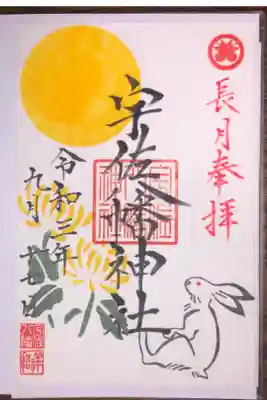 長月奉拝
宇佐八幡神社
令和三年
九月十七日